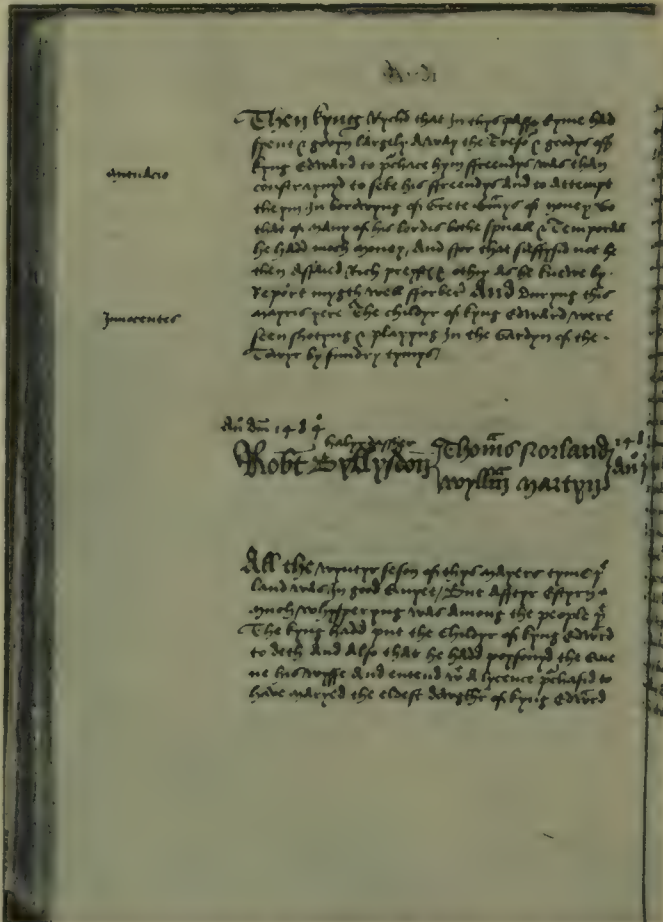 Then kyng Rychd that In thys passe tyme had
spent & govyn largely away the Tresor & goodys off
kyng Edward to prchace hym ffreendys was than
constraynyd to seke his ffreendys And to attempt
theym In borowyng of Grete Summys of money So
that of many of his lordis bothe spuall & Temporall
he hadd moch money, And ffor that suffysid not he
then Assaied Rich & othir as he knewe by
Report mygth well fforber And Duryng this
mayris yere The childyr of kyng Edward were
seen shotyng & playyng In the Gardyn of the
Towyr by sundry tymys
Innocentes
Ann dni 1484
Robt Byllysdon
Thoms Norland
Wyllm Martyn
All the wyntyr seson of thys mayers tyme ye
land was In good Quyet / But afftyr Estyrn
much whysperyng was Among the people yt
The kyng hadd put the childyr of kyng Edward
to deth And also that he hadd poysonyd the Que
ne his wyffe And entend wt A lycence prchasid to
have maryed the eldest dowgthr of kyng Edward